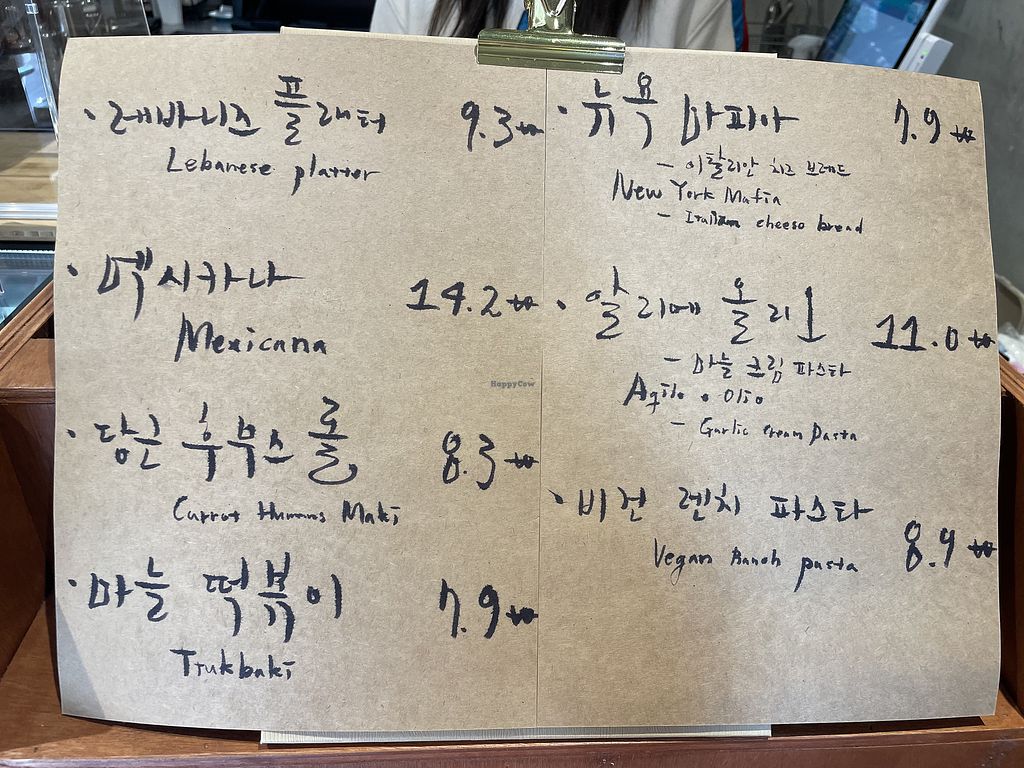 · 레바니즈 플래터 9.3₩
Lebanese platter
· 멕시카나 14.2₩
Mexicana
· 당근 후무스 롤 8.3₩
Carrot Humus Maki
· 마늘 떡볶이 7.9₩
Ttukbaki
· 뉴욕 마피아 7.9₩
- 이탈리안 치즈 브레드
New York Mafia
- Italian cheese bread
· 알리메 올리오 11.0₩
- 마늘 크림 파스타
Aglio e Olio
- Garlic cream pasta
· 비건 렌치 파스타 8.9₩
Vegan Ranch pasta
HappyCow